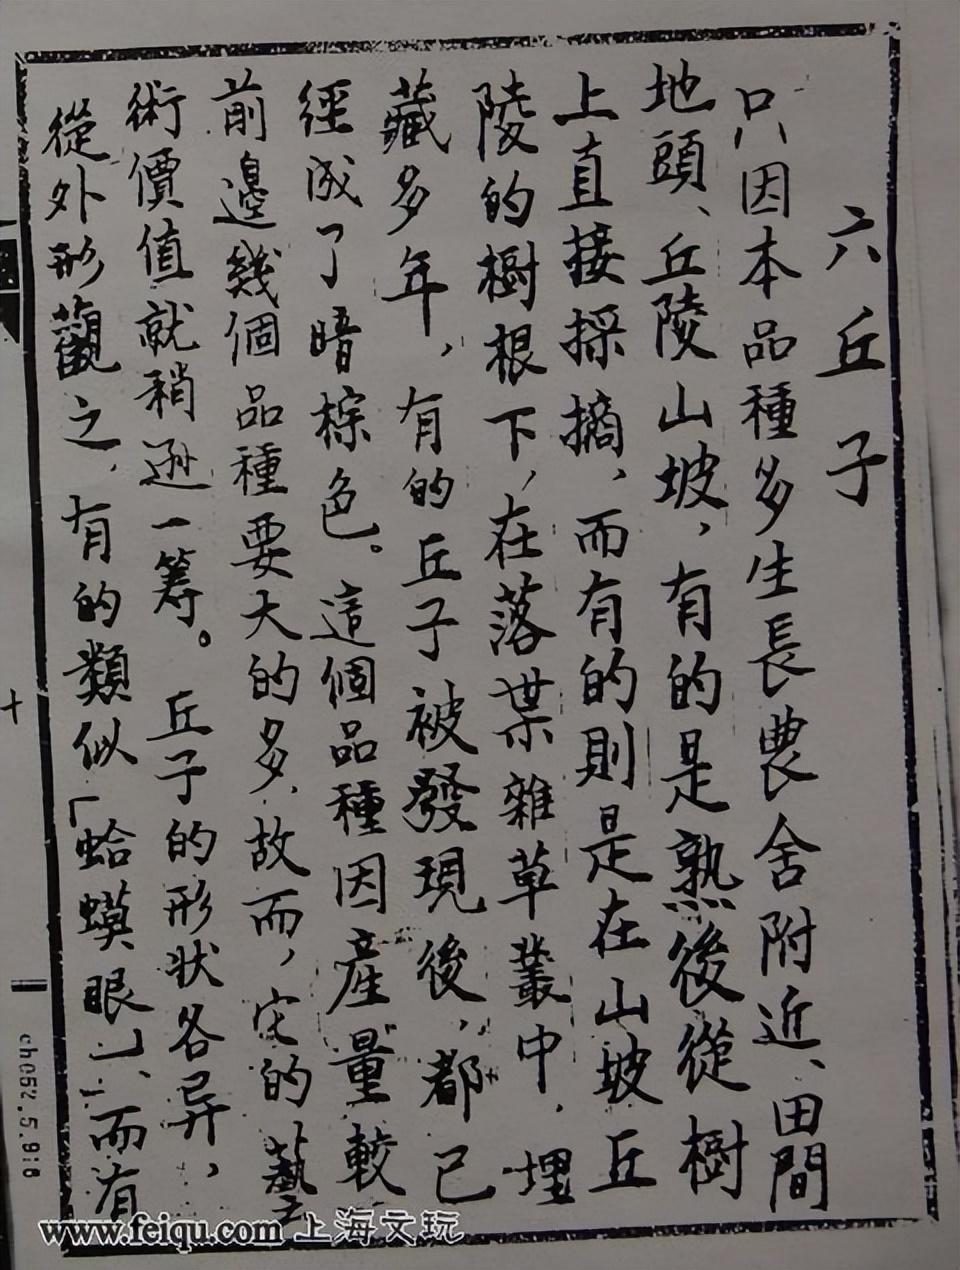 六丘子
只因本品種多生長農舍附近、田間
地頭、丘陵山坡，有的是熟後從樹
上直接採摘，而有的則是在山坡丘
陵的樹根下，在落葉雜草叢中，埋
藏多年，有的丘子被發現後，都已
經成了暗棕色。這個品種因產量較
前邊幾個品種要大的多，故而，它的藝
術價值就稍遜一籌。丘子的形狀各异，
從外形觀之，有的類似「蛤蟆眼」、而有
十
cho57.5.98
www.feiqu.com 上海文玩